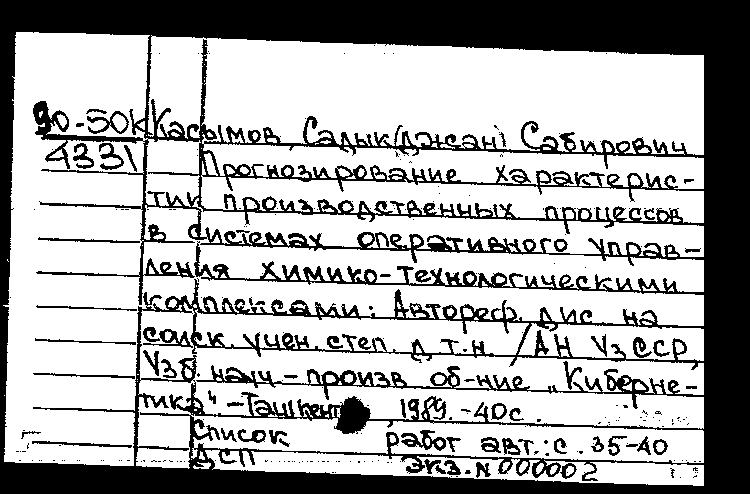 90-50К Касымов Садык(джан) Сабирович
4331 Прогнозирование характерис-
тик производственных процессов
в системах оперативного управ-
ления химико-технологическими
комплексами: Автореф. дис. на
соиск. учен. степ. д.т.н. /АН УзССР,
Узб. науч-произв об-ние „Киберне-
тика" - Ташкент, 1989. - 40с.
Список работ авт.: с. 35-40
ДСП экз. N 000002